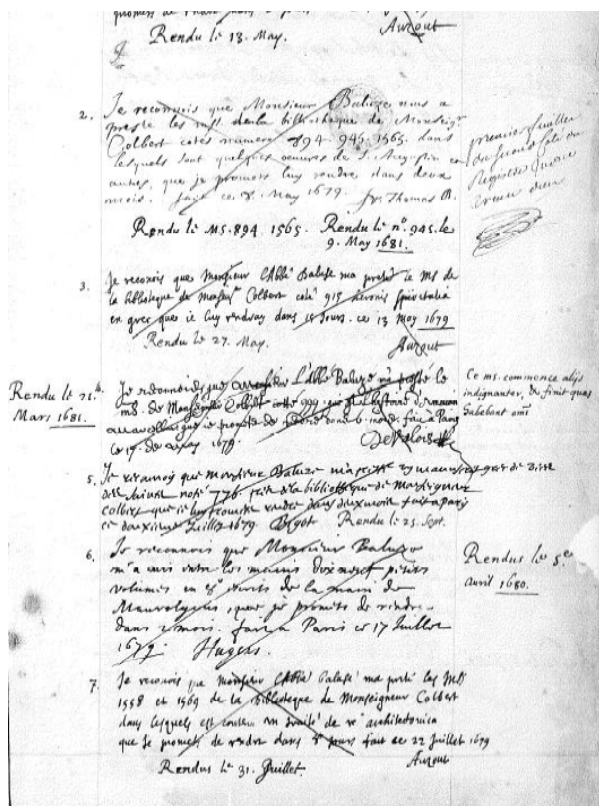 Rendu le 13. May. Auzout
2. Je reconnois que Monsieur Baluze nous a
presté les mss. de la bibliotheque de Monseigr
Colbert cotés numero 894. 945. 1565. dans
lesquels sont quelques oeuvres de S. Augustin et
autres, que je promets luy rendre dans deux
mois. fait ce 8. May 1679. fr. Thomas B.
premier feuillet
du second
Registre
Rendu le MS. 894. 1565. Rendu le nº. 945. le
9. May 1681.
3. Je reconois que Monsieur l'Abbé Baluse ma presté le MS de
la bibloteque de Monseigr Colbert coté 915 heronis spiritalia
en grec que ie luy rendray dans 15 jours. ce 13 may 1679
Rendu le 27. May. Auzout
Rendu le 21.
Mars 1681.
Je reconnoids que monsieur L'abbé Baluze m'a presté le
ms. de Monseigneur Colbert cotté 999. qui est l'histoire d'Ammian
Marcellin que ie promets de rendre dans 6. mois. fait à Paris
ce 19. de may 1679. DeValois
Ce ms. commence alijs
indignanter, & finit quas
habebant
5. Je reconnoy que monsieur Baluze m'a presté un manuscrit grec de
noté 776. de la bibliotheque de Monseigneur
Colbert que ie luy promets rendre dans deux mois fait a paris
ce deuxieme Juillet 1679. Bigot Rendu le 25. Sept.
6. Je reconnois que Monsieur Baluze
m'a mis entre les mains dix neuf petits
volumes en 8º écrits de la main de
Maurolycus, que je promets de rendre
dans 2 mois. fait a Paris ce 17 Juillet
1679. Hugens.
Rendus le 5e
avril 1680.
7. Je reconois que monsieur l'Abbé Baluse ma presté les MSS
1558 et 1569 de la bibloteque de Monseigneur Colbert
dans lesquels est contenu un traité de re architectonica
que je promets de rendre dans 8 jours fait ce 22 Juillet 1679
Rendus le 31. Juillet. Auzout